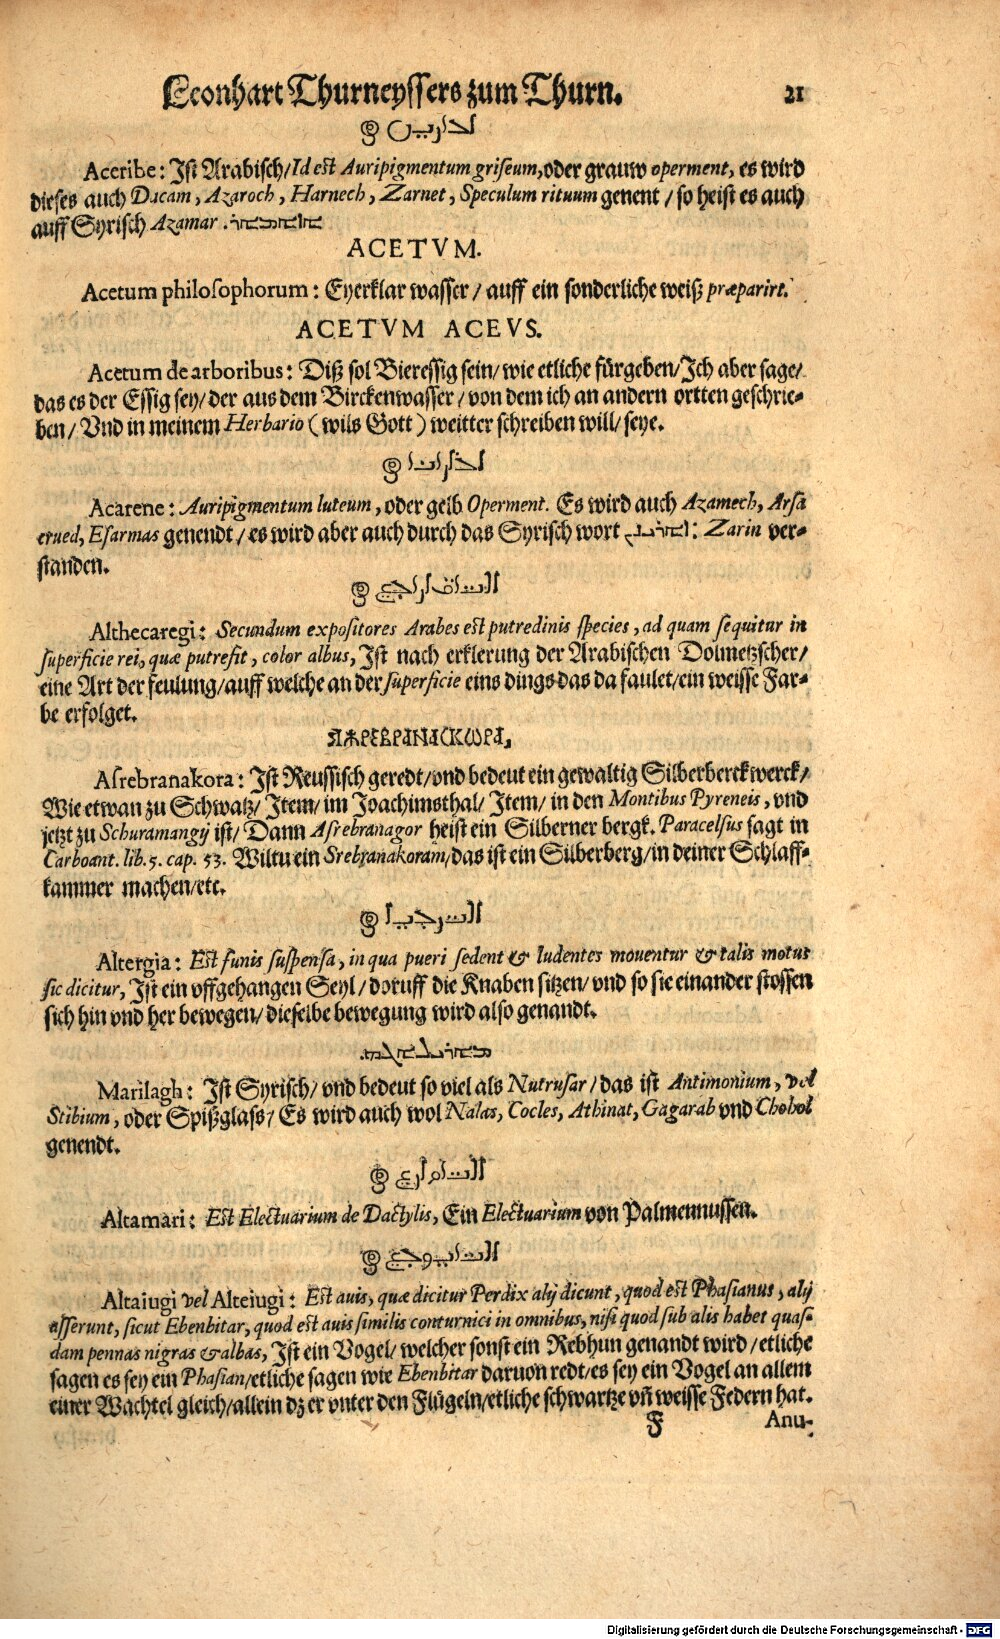 Leonhart Thurneyssers zum Thurn. 21
Aceribe: Ist Arabisch/Id est Auripigmentum griseum, oder grauw operment, es wird
dieses auch Dacam, Azaroch, Harnech, Zarnet, Speculum rituum genent / so heist es auch
auff Syrisch Azamar.
ACETVM.
Acetum philosophorum: Eyerklar wasser / auff ein sonderliche weiß præparirt.
ACETVM ACEVS.
Acetum de arboribus: Diß sol Bieressig sein/ wie etliche fürgeben/ Ich aber sage/
das es der Essig sey/ der aus dem Birckenwasser / von dem ich an andern ortten geschrie-
ben / Vnd in meinem Herbario (wils Gott) weitter schreiben will/ seye.
Acarene: Auripigmentum luteum, oder gelb Operment. Es wird auch Azamech, Arsa
erued, Esarmas genendt / es wird aber auch durch das Syrisch wort : Zarin ver-
standen.
Althecaregi: Secundum expositores Arabes est putredinis species, ad quam sequitur in
superficie rei, quæ putrefit, color albus, Ist nach erklerung der Arabischen Dolmetzscher/
eine Art der feulung/ auff welche an der superficie eins dings das da faulet/ ein weisse Far-
be erfolget.
Asrebranakora: Ist Reussisch geredt/ vnd bedeut ein gewaltig Silberberckwerck/
Wie etwan zu Schwatz/ Item/ im Joachimsthal/ Item/ in den Montibus Pyreneis, vnd
jetzt zu Schuramangij ist/ Dann Asrebranagor heist ein Silberner bergk. Paracelsus sagt in
Carboant. lib. 5. cap. 53. Wiltu ein Srebranakoram/ das ist ein Silberberg/ in deiner Schlaff-
kammer machen/ etc.
Altergia: Est funis suspensa, in qua pueri sedent & ludentes mouentur & talis motus
sic dicitur, Ist ein vffgehangen Seyl/ doruff die Knaben sitzen/ vnd so sie einander stossen
sich hin vnd her bewegen/ dieselbe bewegung wird also genandt.
Marilagh: Ist Syrisch/ vnd bedeut so viel als Nutrusar / das ist Antimonium, vel
Stibium, oder Spißglass/ Es wird auch wol Nalas, Cocles, Athinat, Gagarab vnd Chohol
genendt.
Altamari: Est Electuarium de Dactylis, Ein Electuarium von Palmennussen.
Altaiugi vel Alteiugi: Est auis, quæ dicitur Perdix alij dicunt, quod est Phasianus, alij
asserunt, sicut Ebenbitar, quod est auis similis conturnici in omnibus, nisi quod sub alis habet quas-
dam pennas nigras & albas, Ist ein Vogel/ welcher sonst ein Rebhun genandt wird / etliche
sagen es sey ein Phasian/ etliche sagen wie Ebenbitar daruon redt/ es sey ein Vogel an allem
einer Wachtel gleich/ allein dz er vnter den Flügeln/ etliche schwartze vñ weisse Federn hat.
F Anu-
Digitalisierung gefördert durch die Deutsche Forschungsgemeinschaft - DFG